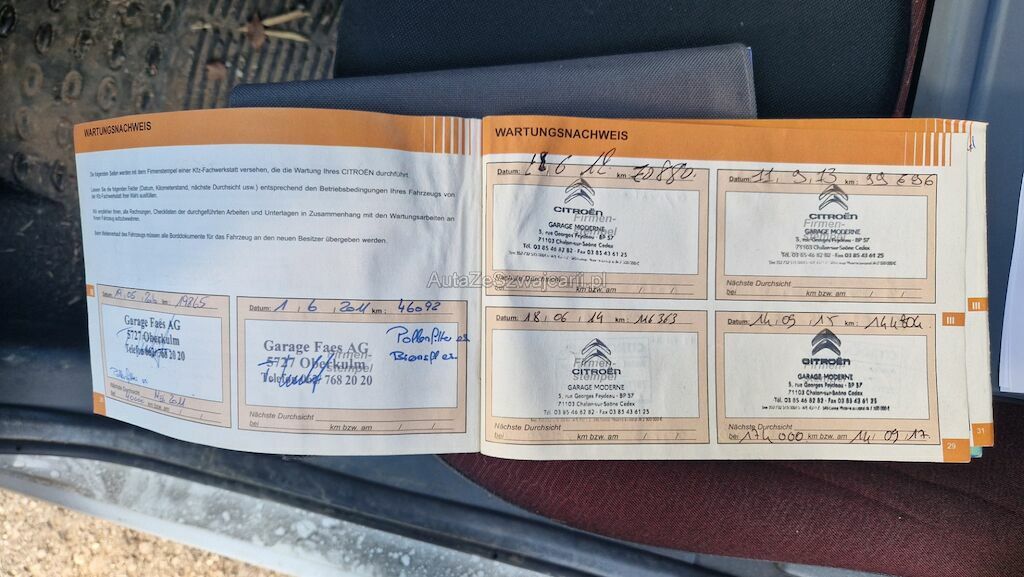 WARTUNGSNACHWEIS
Die folgenden Seiten werden mit dem Firmenstempel einer Kfz-Fachwerkstatt versehen, die die Wartung Ihres CITROËN durchführt.
Lassen Sie die folgenden Felder (Datum, Kilometerstand, nächste Durchsicht usw.) entsprechend den Betriebsbedingungen Ihres Fahrzeugs von
der Kfz-Fachwerkstatt Ihrer Wahl ausfüllen.
Wir empfehlen Ihnen, alle Rechnungen, Checklisten der durchgeführten Arbeiten und Unterlagen in Zusammenhang mit den Wartungsarbeiten an
Ihrem Fahrzeug aufzubewahren.
Beim Weiterverkauf des Fahrzeugs müssen alle Borddokumente für das Fahrzeug an den neuen Besitzer übergeben werden.
Datum: km: 19865
Garage Faes AG
5727 Oberkulm
Telefon 062 768 20 20
Nächste Durchsicht
bei 40000 km bzw. am Mai 2011
Datum: 1. 6. 2011 km: 46092
Garage Faes AG
5727 Oberkulm
Telefon 768 20 20
Firmen-
stempel
Pollenfilter es
Nächste Durchsicht
bei km bzw. am / /
WARTUNGSNACHWEIS
Datum: 6 12 km: 70880.
CITROËN
Firmen-
stempel
GARAGE MODERNE
5, rue Georges Feydeau - BP 57
71103 Chalon-sur-Saône Cedex
Tél. 03 85 46 82 82 - Fax 03 85 43 61 25
Nächste Durchsicht
bei km bzw. am / /
Datum: 11. 9. 13 km: 99 696
CITROËN
Firmen-
stempel
GARAGE MODERNE
5, rue Georges Feydeau - BP 57
71103 Chalon-sur-Saône Cedex
Tél. 03 85 46 82 82 - Fax 03 85 43 61 25
Nächste Durchsicht
bei km bzw. am / /
Datum: 18. 06. 14 km: 116 363
CITROËN
Firmen-
stempel
GARAGE MODERNE
5, rue Georges Feydeau - BP 57
71103 Chalon-sur-Saône Cedex
Tél. 03 85 46 82 82 - Fax 03 85 43 61 25
Nächste Durchsicht
bei km bzw. am / /
Datum: 14. 09. 15 km: 144804.
CITROËN
Firmen-
stempel
GARAGE MODERNE
5, rue Georges Feydeau - BP 57
71103 Chalon-sur-Saône Cedex
Tél. 03 85 46 82 82 - Fax 03 85 43 61 25
Nächste Durchsicht
bei 174 000 km bzw. am 14. 09. 17.
III
III
29
31
AutaZeSzwajcarii.pl